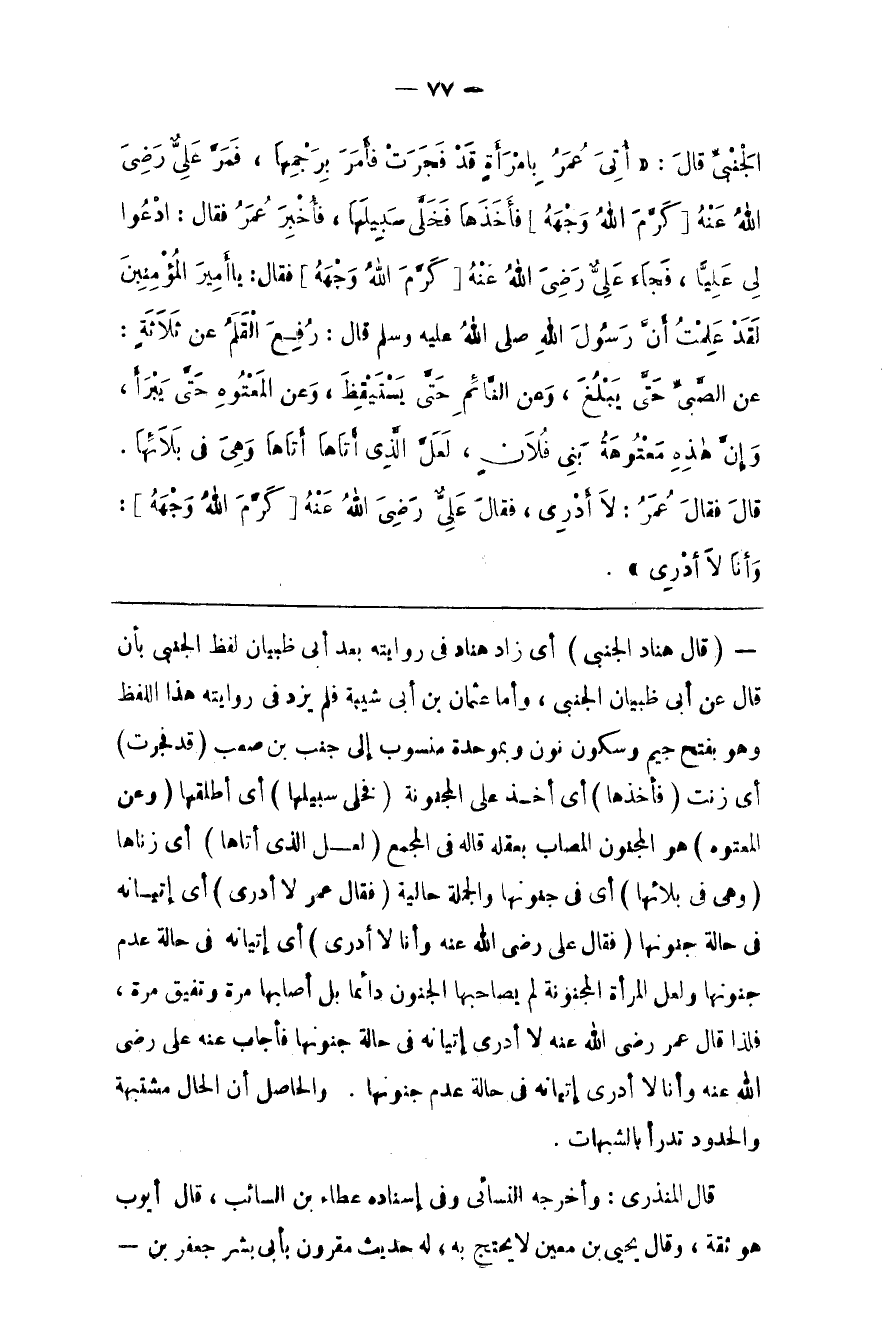 — ٧٧ —
الْجَنْبِيُّ قالَ : « أُتِىَ عُمَرُ بِامْرَأَةٍ قَدْ فَجَرَتْ فأَمَرَ بِرَجْمِهَا ، فَمَرَّ عَلِيٌّ رَضِىَ
اللهُ عَنْهُ [ كَرَّمَ اللهُ وَجْهَهُ ] فأَخَذَهَا فَخَلَّى سَبِيلَهَا ، فأُخْبِرَ عُمَرُ فقال : ادْعُوا
لِى عَلِيًّا ، فَجَاءَ عَلِيٌّ رَضِىَ اللهُ عَنْهُ [ كَرَّمَ اللهُ وَجْهَهُ ] فقال: ياأَمِيرَ الْمُؤْمِنِينَ
لَقَدْ عَلِمْتُ أَنَّ رَسُولَ اللهِ صلى اللهُ عليه وسلم قال : رُفِعَ الْقَلَمُ عن ثَلَاثَةٍ :
عن الصَّبِىِّ حَتَّى يَبْلُغَ ، وَعن النَّائمِ حَتَّى يَسْتَيْقِظَ ، وَعن المَعْتُوهِ حَتَّى يَبْرَأَ ،
وَإِنَّ هٰذِهِ مَعْتُوهَةُ بَنِى فُلَانٍ ، لَعَلَّ الَّذِى أَتَاهَا أَتَاهَا وَهِىَ فى بَلَائِهَا .
قالَ فقالَ عُمَرُ : لاَ أَدْرِى ، فقالَ عَلِيٌّ رَضِىَ اللهُ عَنْهُ [ كَرَّمَ اللهُ وَجْهَهُ ] :
وَأنَا لاَ أدْرِى » .
— ( قال هناد الجنبى ) أى زاد هناد فى روايته بعد أبى ظبيان لفظ الجنبى بأن
قال عن أبى ظبيان الجنبى ، وأما عثمان بن أبى شيبة فلم يزد فى روايته هذا اللفظ
وهو بفتح جيم وسكون نون وبموحدة منسوب إلى جنب بن صعب ( قد فجرت )
أى زنت ( فأخذها ) أى أخذ على المجنونة ( فخلى سبيلها ) أى أطلقها ( وعن
المعتوه ) هو المجنون المصاب بعقله قاله فى المجمع ( لعل الذى أتاها ) أى زناها
( وهى فى بلائها ) أى فى جنونها والجملة حالية ( فقال عمر لا أدرى ) أى إتيانه
فى حالة جنونها ( فقال على رضى الله عنه وأنا لا أدرى ) أى إتيانه فى حالة عدم
جنونها ولعل المرأة المجنونة لم يصاحبها الجنون دائما بل أصابها مرة وتفيق مرة ،
فلذا قال عمر رضى الله عنه لا أدرى إتيانه فى حالة جنونها فأجاب عنه على رضى
الله عنه وأنا لا أدرى إتيانه فى حالة عدم جنونها . والحاصل أن الحال مشتبهة
والحدود تدرأ بالشبهات .
قال المنذرى : وأخرجه النسائى وفى إسناده عطاء بن السائب ، قال أيوب
هو ثقة ، وقال يحيى بن معين لا يحتج به ، له حديث مقرون بأبى بشر جعفر بن —